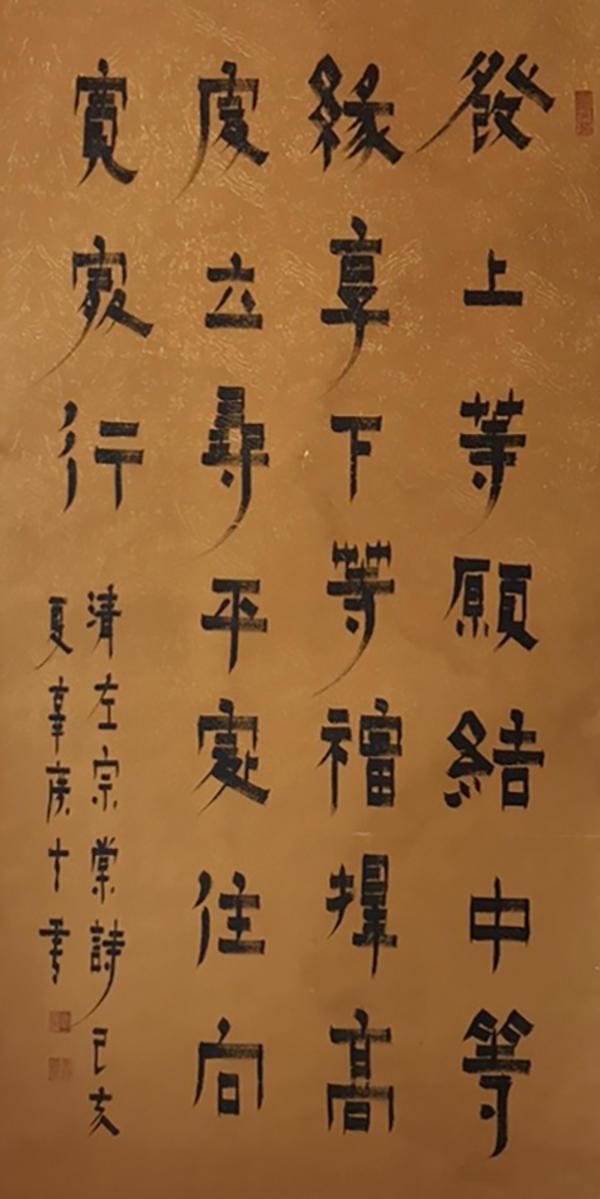 發上等願結中等
緣享下等福擇高
處立尋平處住向
寬處行
清左宗棠詩己亥
夏